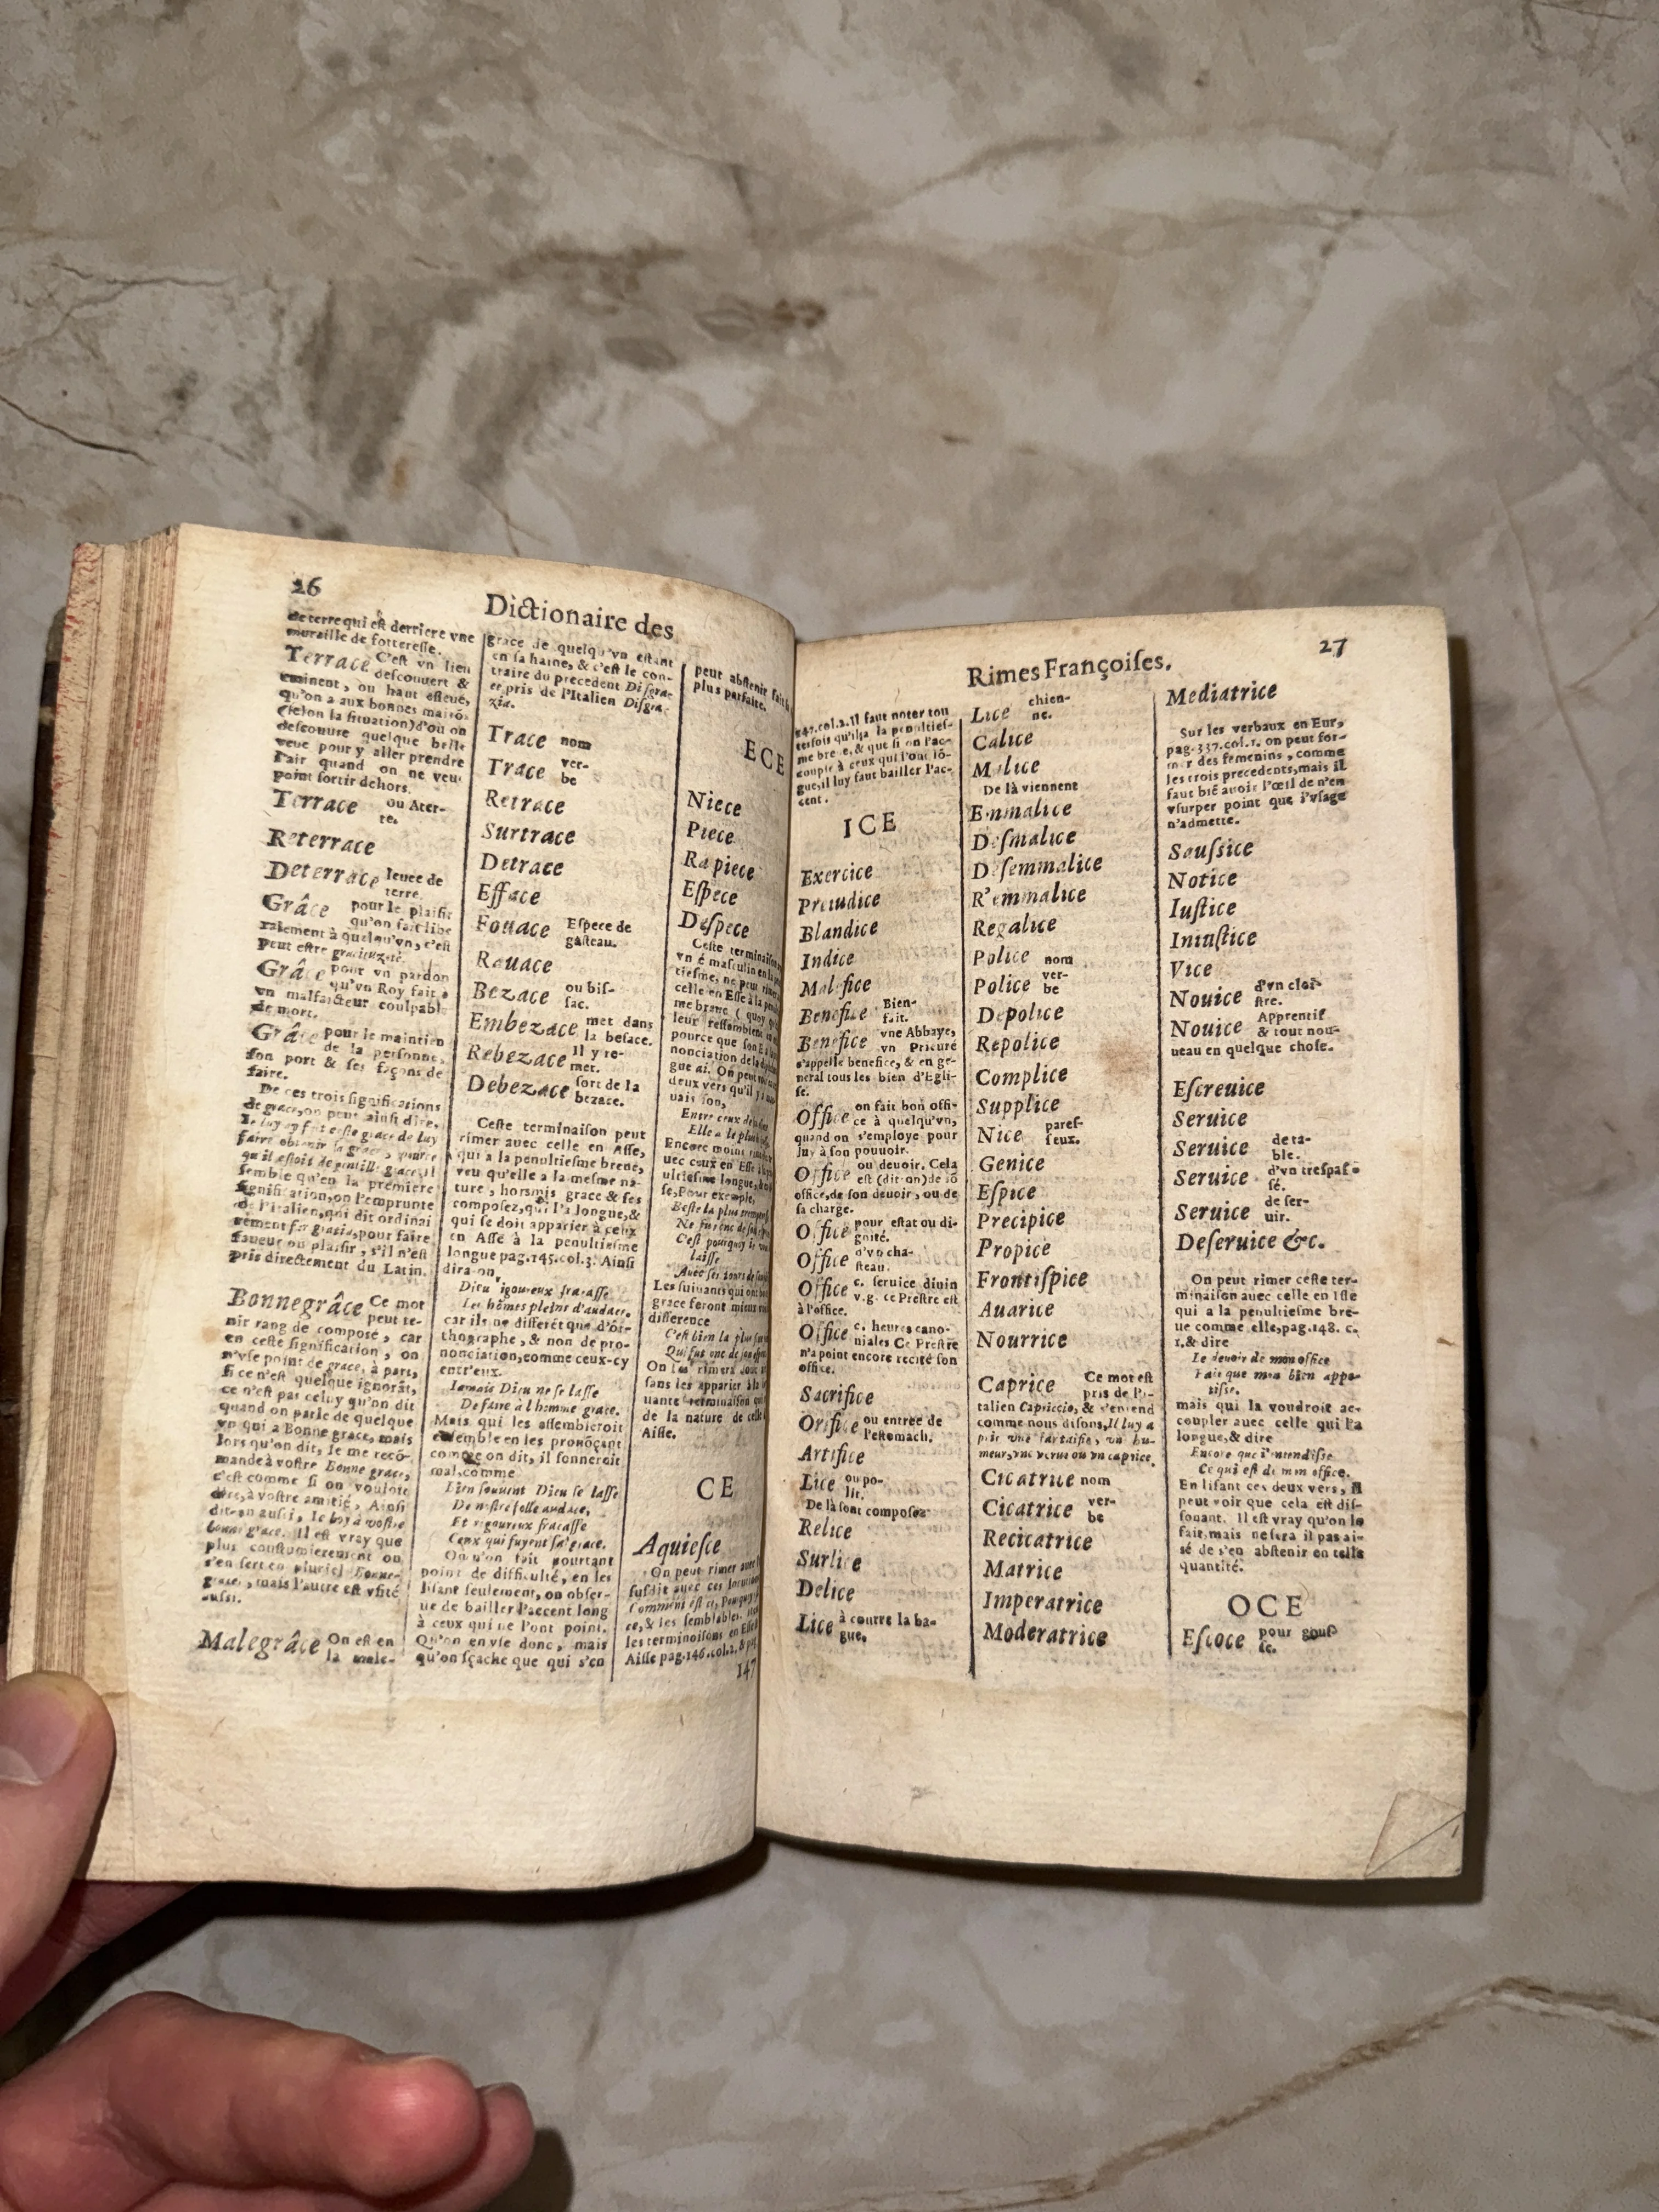 26
Dictionaire des
de terre qui eſt derriere vne
muraille de fortereſſe.
Terrace C'eſt vn lieu
deſcouvert &
eminent, ou haut eſleué,
qu'on a aux bonnes maisõ-
(ſelon la ſituation) d'où on
deſcouure quelque belle
veuë pour y aller prendre
l'air quand on ne veu-
point ſortir dehors.
Terrace ou Ater-
re.
Reterrace
Deterrace leuee de
terre.
Grâce pour le plaiſir
qu'on fait libe
ralement à quelqu'vn, c'eſt
peut eſtre gracieuzeté.
Grâce pour vn pardon
qu'vn Roy fait à
vn malfaicteur coulpable
de mort.
Grâce pour le maintien
de la perſonne,
ſon port & ſes façons de
faire.
De ces trois ſignifications
de grace, on peut ainſi dire,
Ie luy ay fait ceſte grace de luy
faire obtenir ſa grace, pource
qu'il eſtoit de gentille grace, il
ſemble qu'en la premiere
ſignification, on l'emprunte
de l'Italien, qui dit ordinai
rement far gratia, pour faire
faueur ou plaiſir, s'il n'eſt
pris directement du Latin.
Bonnegrâce Ce mot
peut te-
nir rang de compoſé, car
en ceſte ſignification, on
n'vſe point de grace, à part,
ſi ce n'eſt quelque ignorãt,
ce n'eſt pas celuy qu'on dit
quand on parle de quelque
vn qui a Bonne grace, mais
lors qu'on dit, Ie me recõ-
mande à voſtre Bonne grace,
c'eſt comme ſi on vouloit
dire, à voſtre amitié, Ainſi
dit-on auſſi, Ie boy à voſtre
bonne grace. Il eſt vray que
plus couſtumierement on
s'en ſert en pluriel Bonne-
graces, mais l'autre eſt vſité
auſſi.
Malegrâce On eſt en
la male-
grace de quelqu'vn eſtant
en ſa haine, & c'eſt le con-
traire du precedent Diſgra-
ce, pris de l'Italien Diſgra-
zia.
Trace nom
Trace ver-
be
Retrace
Surtrace
Detrace
Efface
Fouace Eſpece de
gaſteau.
Rauace
Bezace ou biſ-
ſac.
Embezace met dans
la beſace.
Rebezace Il y re-
met.
Debezace ſort de la
bezace.
Ceſte terminaiſon peut
rimer avec celle en Aſſe,
qui a la penultieſme breue,
veu qu'elle a la meſme na-
ture, horsmis grace & ſes
compoſez, qui l'a longue, &
qui ſe doit apparier à ceux
en Aſſe à la penultieſme
longue pag. 145. col. 3. Ainſi
dira-on,
Dieu rigoureux fracaſſe
Les hõmes pleins d'audace,
car ils ne differẽt que d'or-
thographe, & non de pro-
nonciation, comme ceux-cy
entr'eux.
Iamais Dieu ne ſe laſſe
De faire à l'homme grace.
Mais qui les aſſembleroit
enſemble en les pronõçant
comme on dit, il ſonneroit
mal, comme
Bien ſouuent Dieu ſe laſſe
De noſtre folle audace,
Et rigoureux fracaſſe
Ceux qui fuyent ſa grace.
Qu'on fait pourtant
point de difficulté, en les
liſant ſeulement, on obſer-
ue de bailler l'accent long
à ceux qui ne l'ont point.
Qu'on en vſe donc, mais
qu'on ſçache que qui s'en
peut abſtenir fait
plus parfaite.
ECE
Niece
Piece
Rapiece
Eſpece
Deſpece
Ceſte terminaiſon
vn é maſculin en la
tieſme, ne peut
celle en Eſſe à la
me breue (quoy
leur reſſemblent
pource que ſon E
nonciation de la
gue ai. On peut
deux vers qu'il y
uais ſon,
Entre ceux de
Elle a le plus
Encore moins
uec ceux en Eſſe à la
ultieſme longue,
ſe, Pour exemple,
Beſte la plus
Ne furent de
C'eſt pourquoy
laiſſe
Auec ſes
Les ſuiuants qui ont
grace ſeront mieux
difference
C'eſt bien la plus
Qui fut one de
On les rimera donc
ſans les apparier à la
uante terminaiſon qui
de la nature de celle
Aiſſe.
CE
Aquieſce
On peut rimer
ſuſdit auec ces
Comment eſt ce, Pourquoy
ce, & les ſemblables.
les terminoiſons en Eſſe
Aiſſe pag. 146. col. 2. & pag.
147
27
Rimes Françoiſes.
147. col. 2. Il faut noter tou
tesfois qu'il a la penultieſ-
me breue, & que ſi on l'ac-
couple à ceux qui l'ont lõ-
gue, il luy faut bailler l'ac-
cent.
ICE
Exercice
Preiudice
Blandice
Indice
Maleﬁce
Beneﬁce Bien-
fait.
Beneﬁce vne Abbaye,
vn Prieuré
s'appelle benefice, & en ge-
neral tous les bien d'Egli-
ſe.
Office on fait bon offi-
ce à quelqu'vn,
quand on s'employe pour
luy à ſon pouuoir.
Office ou deuoir. Cela
eſt (dit on) de ſõ
office, de ſon deuoir, ou de
ſa charge.
Office pour eſtat ou di-
gnité.
Office d'vn cha-
ſteau.
Office c. ſeruice diuin
v.g. ce Preſtre eſt
à l'office.
Office c. heures cano-
niales Ce Preſtre
n'a point encore recité ſon
office.
Sacrifice
Orifice ou entrée de
l'eſtomach.
Artifice
Lice ou po-
lit.
De là ſont compoſez
Relice
Surlice
Delice
Lice à courre la ba-
gue.
Lice chien-
ne.
Calice
Malice
De là viennent
Emmalice
Deſmalice
Deſemmalice
R'emmalice
Regalice
Police nom
Police ver-
be
Depolice
Repolice
Complice
Supplice
Nice pareſ-
ſeux.
Genice
Eſpice
Precipice
Propice
Frontiſpice
Auarice
Nourrice
Caprice Ce mot eſt
pris de l'I-
talien Capriccio, & s'entend
comme nous diſons, Il luy a
pris vne fantaiſie, vn hu-
meur, vne verue ou vn caprice.
Cicatrice nom
Cicatrice ver-
be
Recicatrice
Matrice
Imperatrice
Moderatrice
Mediatrice
Sur les verbaux en Eur,
pag. 337. col. 1. on peut for-
mer des femenins, comme
les trois precedents, mais il
faut biẽ auoir l'œil de n'en
vſurper point que l'vſage
n'admette.
Sauſſice
Notice
Iuſtice
Iniuſtice
Vice
Nouice d'vn cloi-
ſtre.
Nouice Apprentif
& tout nou-
ueau en quelque choſe.
Eſcreuice
Seruice
Seruice de ta-
ble.
Seruice d'vn treſpaſ-
ſé.
Seruice de ſer-
uir.
Deſeruice &c.
On peut rimer ceſte ter-
minaiſon auec celle en Iſſe
qui a la penultieſme bre-
ue comme elle, pag. 148. c.
1. & dire
Le deuoir de mon office
Fait que mon bien appe-
tiſſe.
mais qui la voudroit ac-
coupler auec celle qui l'a
longue, & dire
Encore que i'entendiſſe
Ce qui eſt de mon office.
En liſant ces deux vers, il
peut voir que cela eſt diſ-
ſonant. Il eſt vray qu'on le
fait, mais ne ſera il pas ai-
ſé de s'en abſtenir en telle
quantité.
OCE
Eſcoce pour gouſ-
ſe.